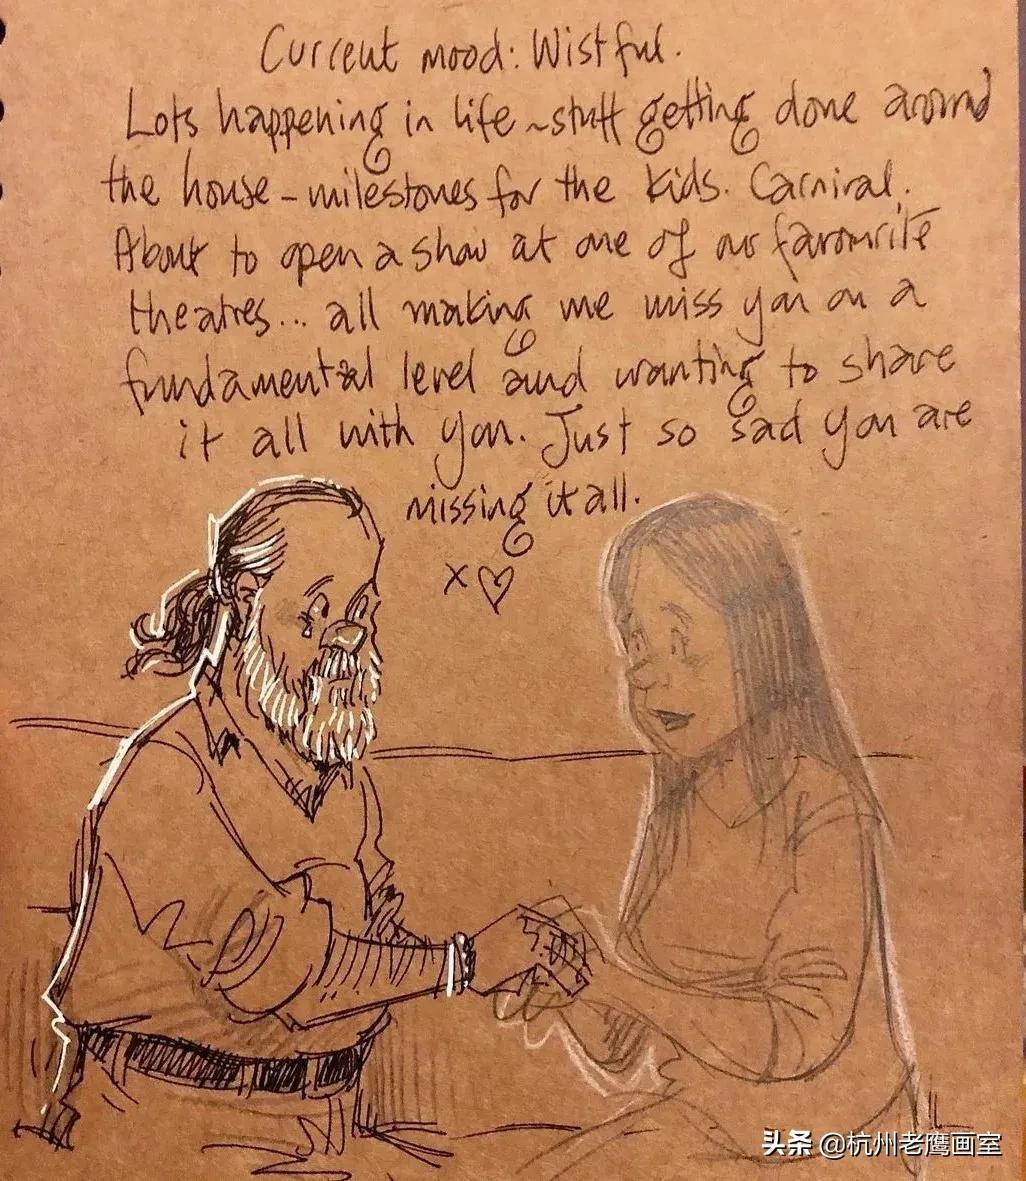 Current mood: Wistful.
Lots happening in life ~ stuff getting done around
the house - milestones for the kids. Carnival.
About to open a show at one of our favourite
theatres... all making me miss you on a
fundamental level and wanting to share
it all with you. Just so sad you are
missing it all.
x♡
头条 @杭州老鹰画室